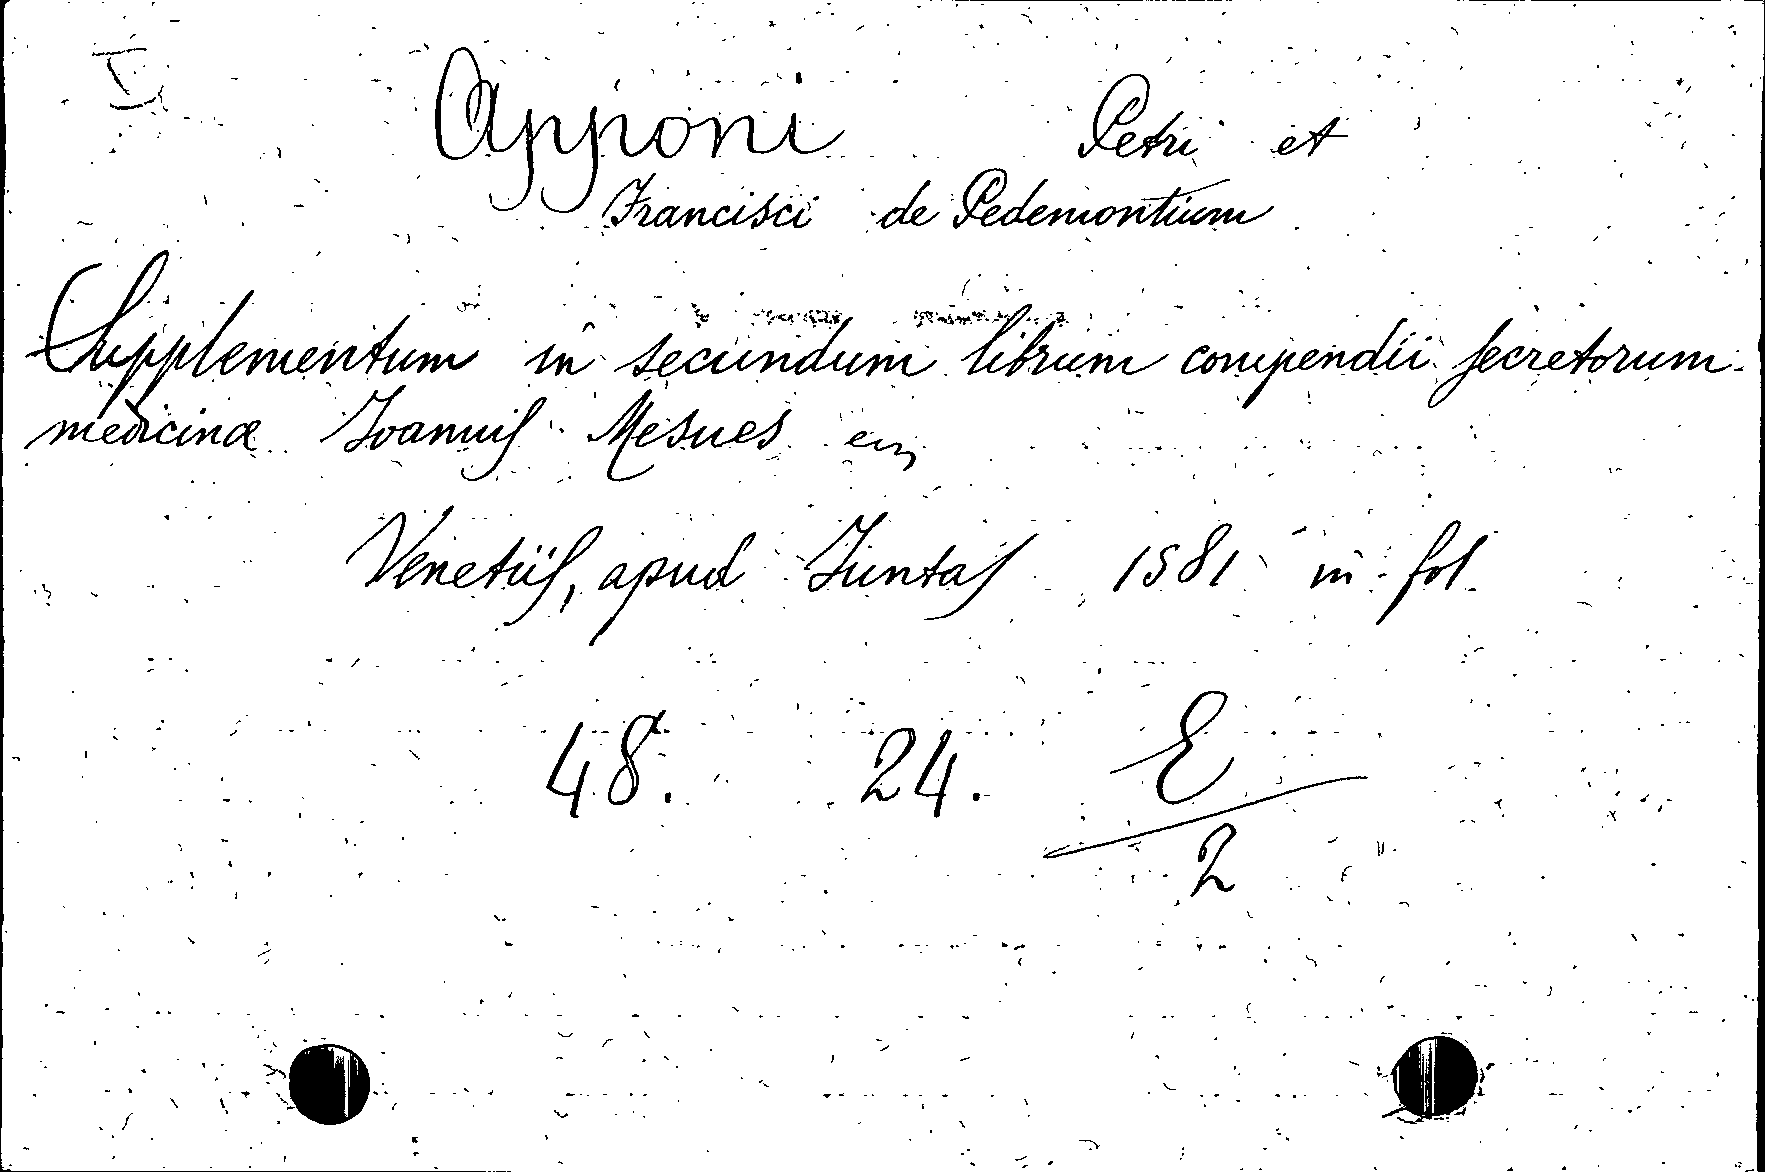 I.
Apponi Petri et
Francisci de Pedemontium
Supplementum in secundum librum compendii secretorum
medicinæ Ioannis Mesues
Venetiis, apud Iuntas 1581 in fol.
48. 24. E
2